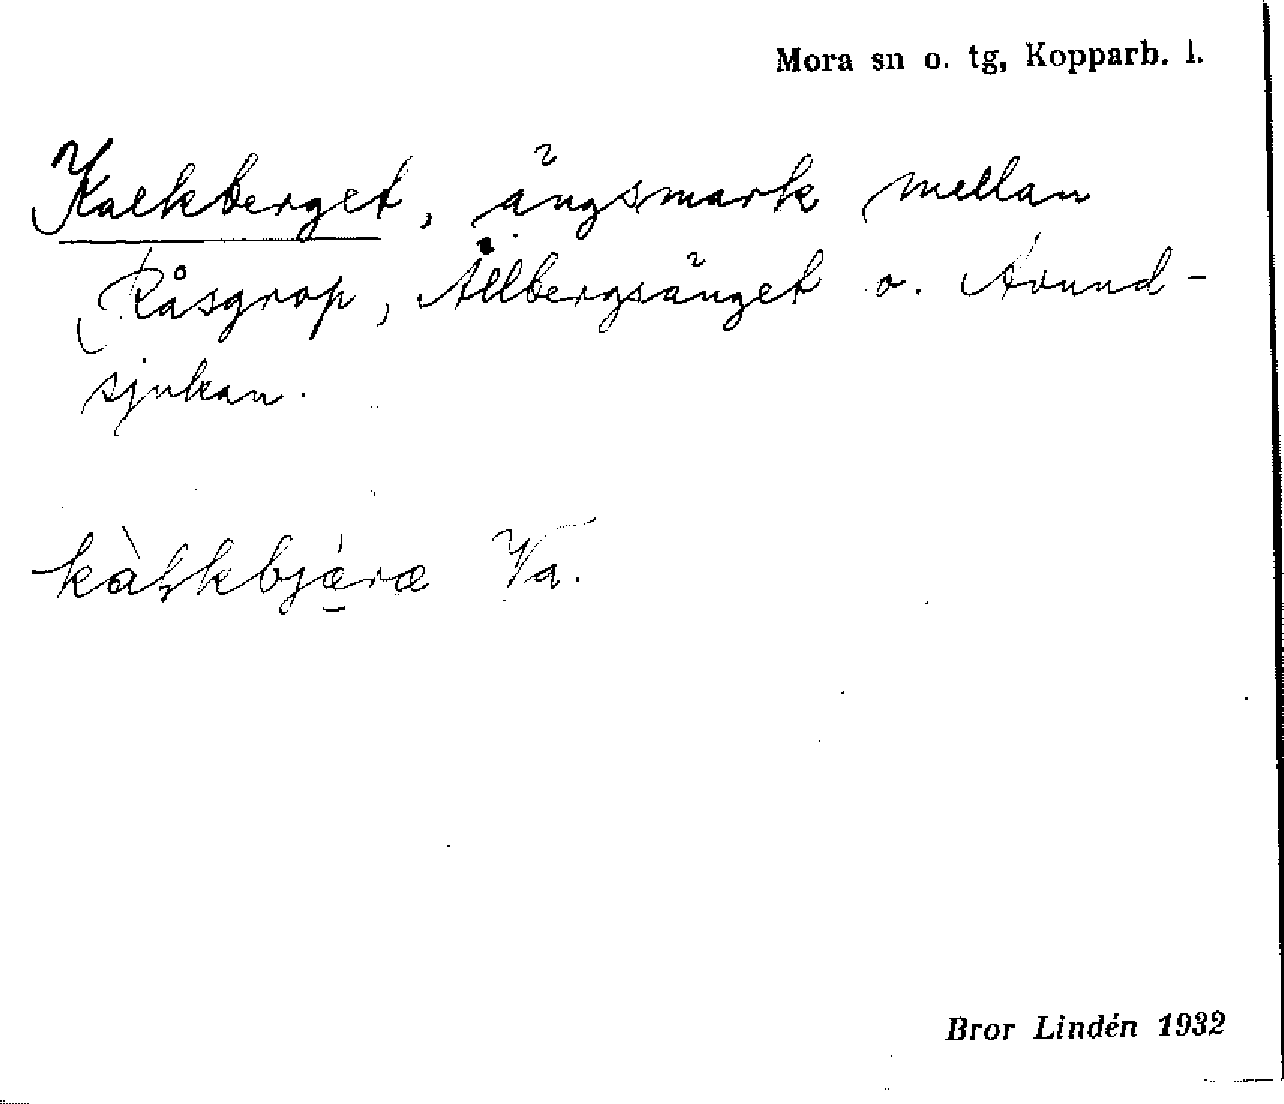 Mora sn o. tg, Kopparb. l.
Kalkberget, ängsmark mellan
Råsgrop, Ällbergsänget o. Avund-
sjukan.
kàḷkbjæ̀ræ Va.
Bror Lindén 1932